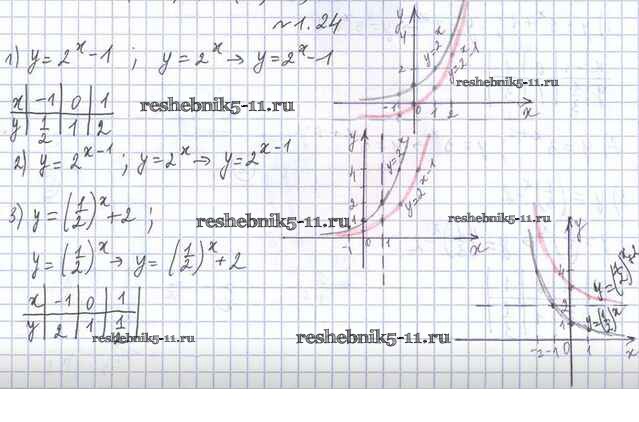 №1.24
1) y=2^x-1 ; y=2^x → y=2^x-1
x | -1 | 0 | 1
y | 1/2 | 1 | 2
2) y=2^(x-1) ; y=2^x → y=2^(x-1)
3) y=(1/2)^x+2 ;
y=(1/2)^x → y=(1/2)^x+2
x | -1 | 0 | 1
y | 2 | 1 | 1/2
y
4
2
y=2^x
y=2^x-1
-1 0 1 2
x
y
4
2
1
y=2^x
y=2^(x-1)
-1 0 1
x
y
4
2
1
y=(1/2)^x+2
y=(1/2)^x
-2 -1 0 1
x
reshebnik5-11.ru
reshebnik5-11.ru
reshebnik5-11.ru
reshebnik5-11.ru
reshebnik5-11.ru
reshebnik5-11.ru